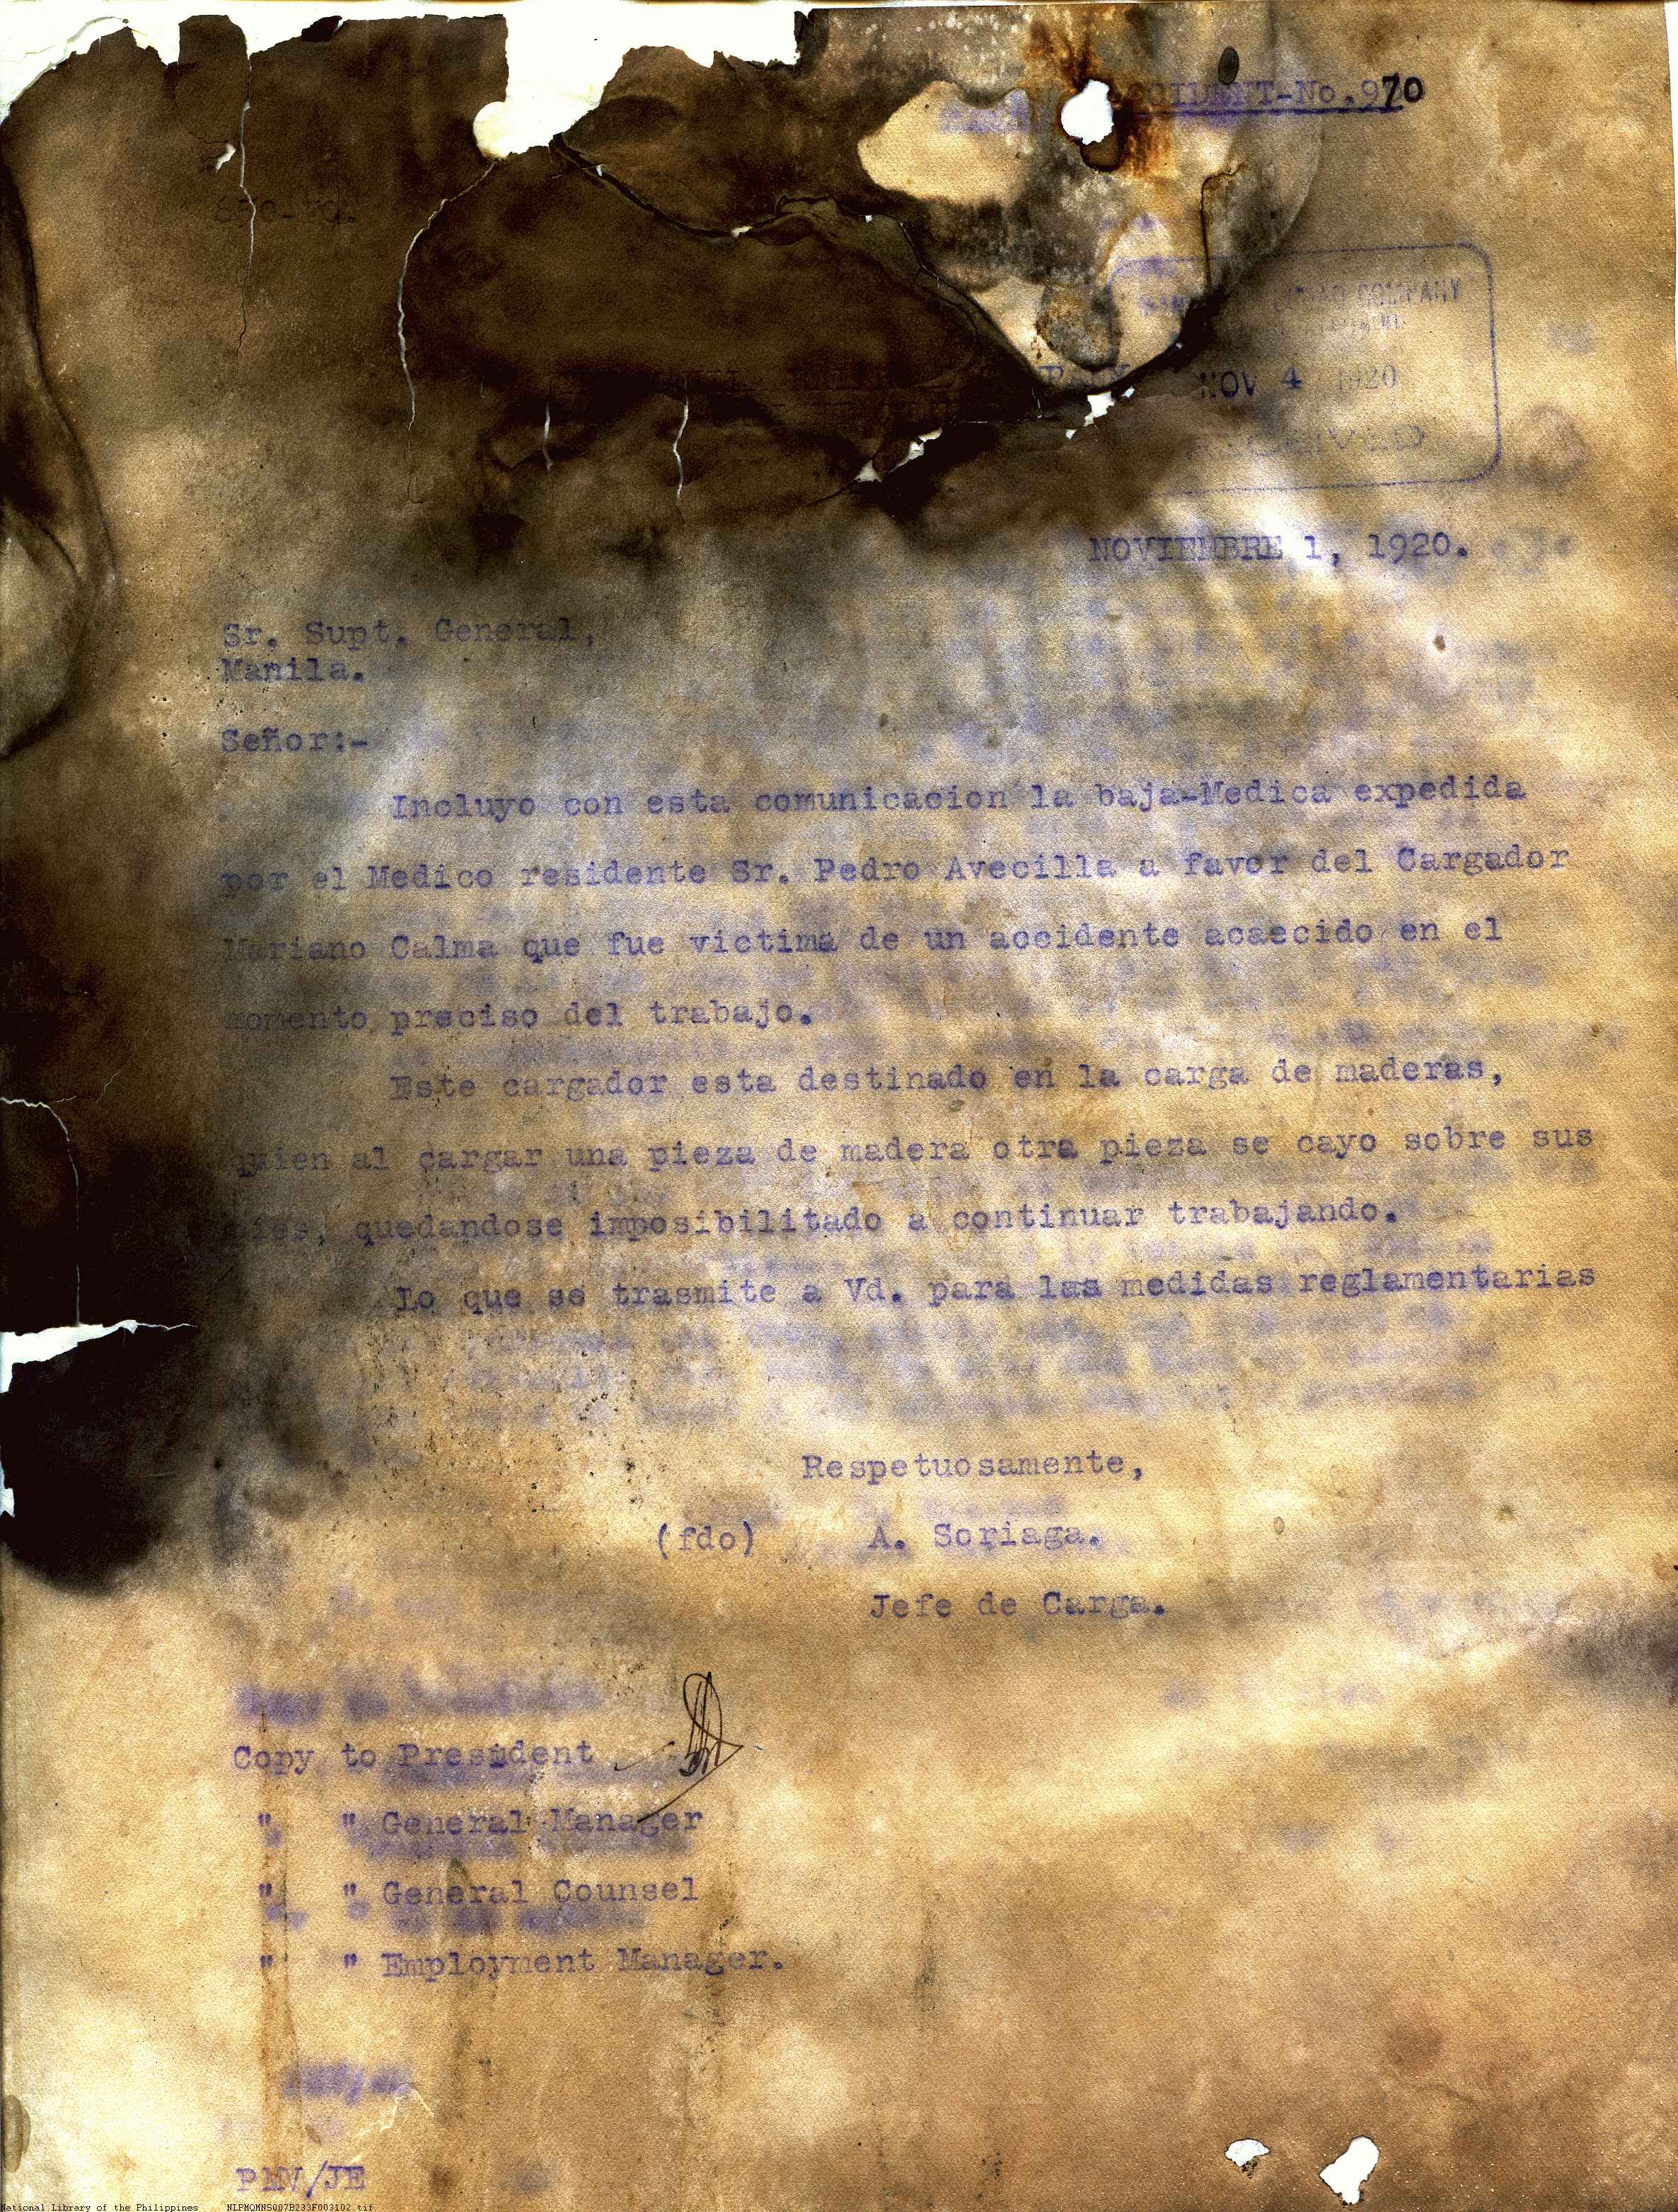 ACCIDENT-No.970
COMPANY
NOV 4 1920
RECEIVED
NOVIEMBRE 1, 1920.
Sr. Supt. General,
Manila.
Señor:-
Incluyo con esta comunicacion la baja-Medica expedida
por el Medico residente Sr. Pedro Avecilla a favor del Cargador
Mariano Calma que fue victima de un accidente acaecido en el
momento preciso del trabajo.
Este cargador esta destinado en la carga de maderas,
quien al cargar una pieza de madera otra pieza se cayo sobre sus
pies, quedandose imposibilitado a continuar trabajando.
Lo que se trasmite a Vd. para las medidas reglamentarias
Respetuosamente,
(fdo) A. Soriaga.
Jefe de Carga.
Copy to President
" " General Manager
" " General Counsel
" " Employment Manager.
PMV/JE
National Library of the Philippines NLPMQMNS007B233F003102.tif